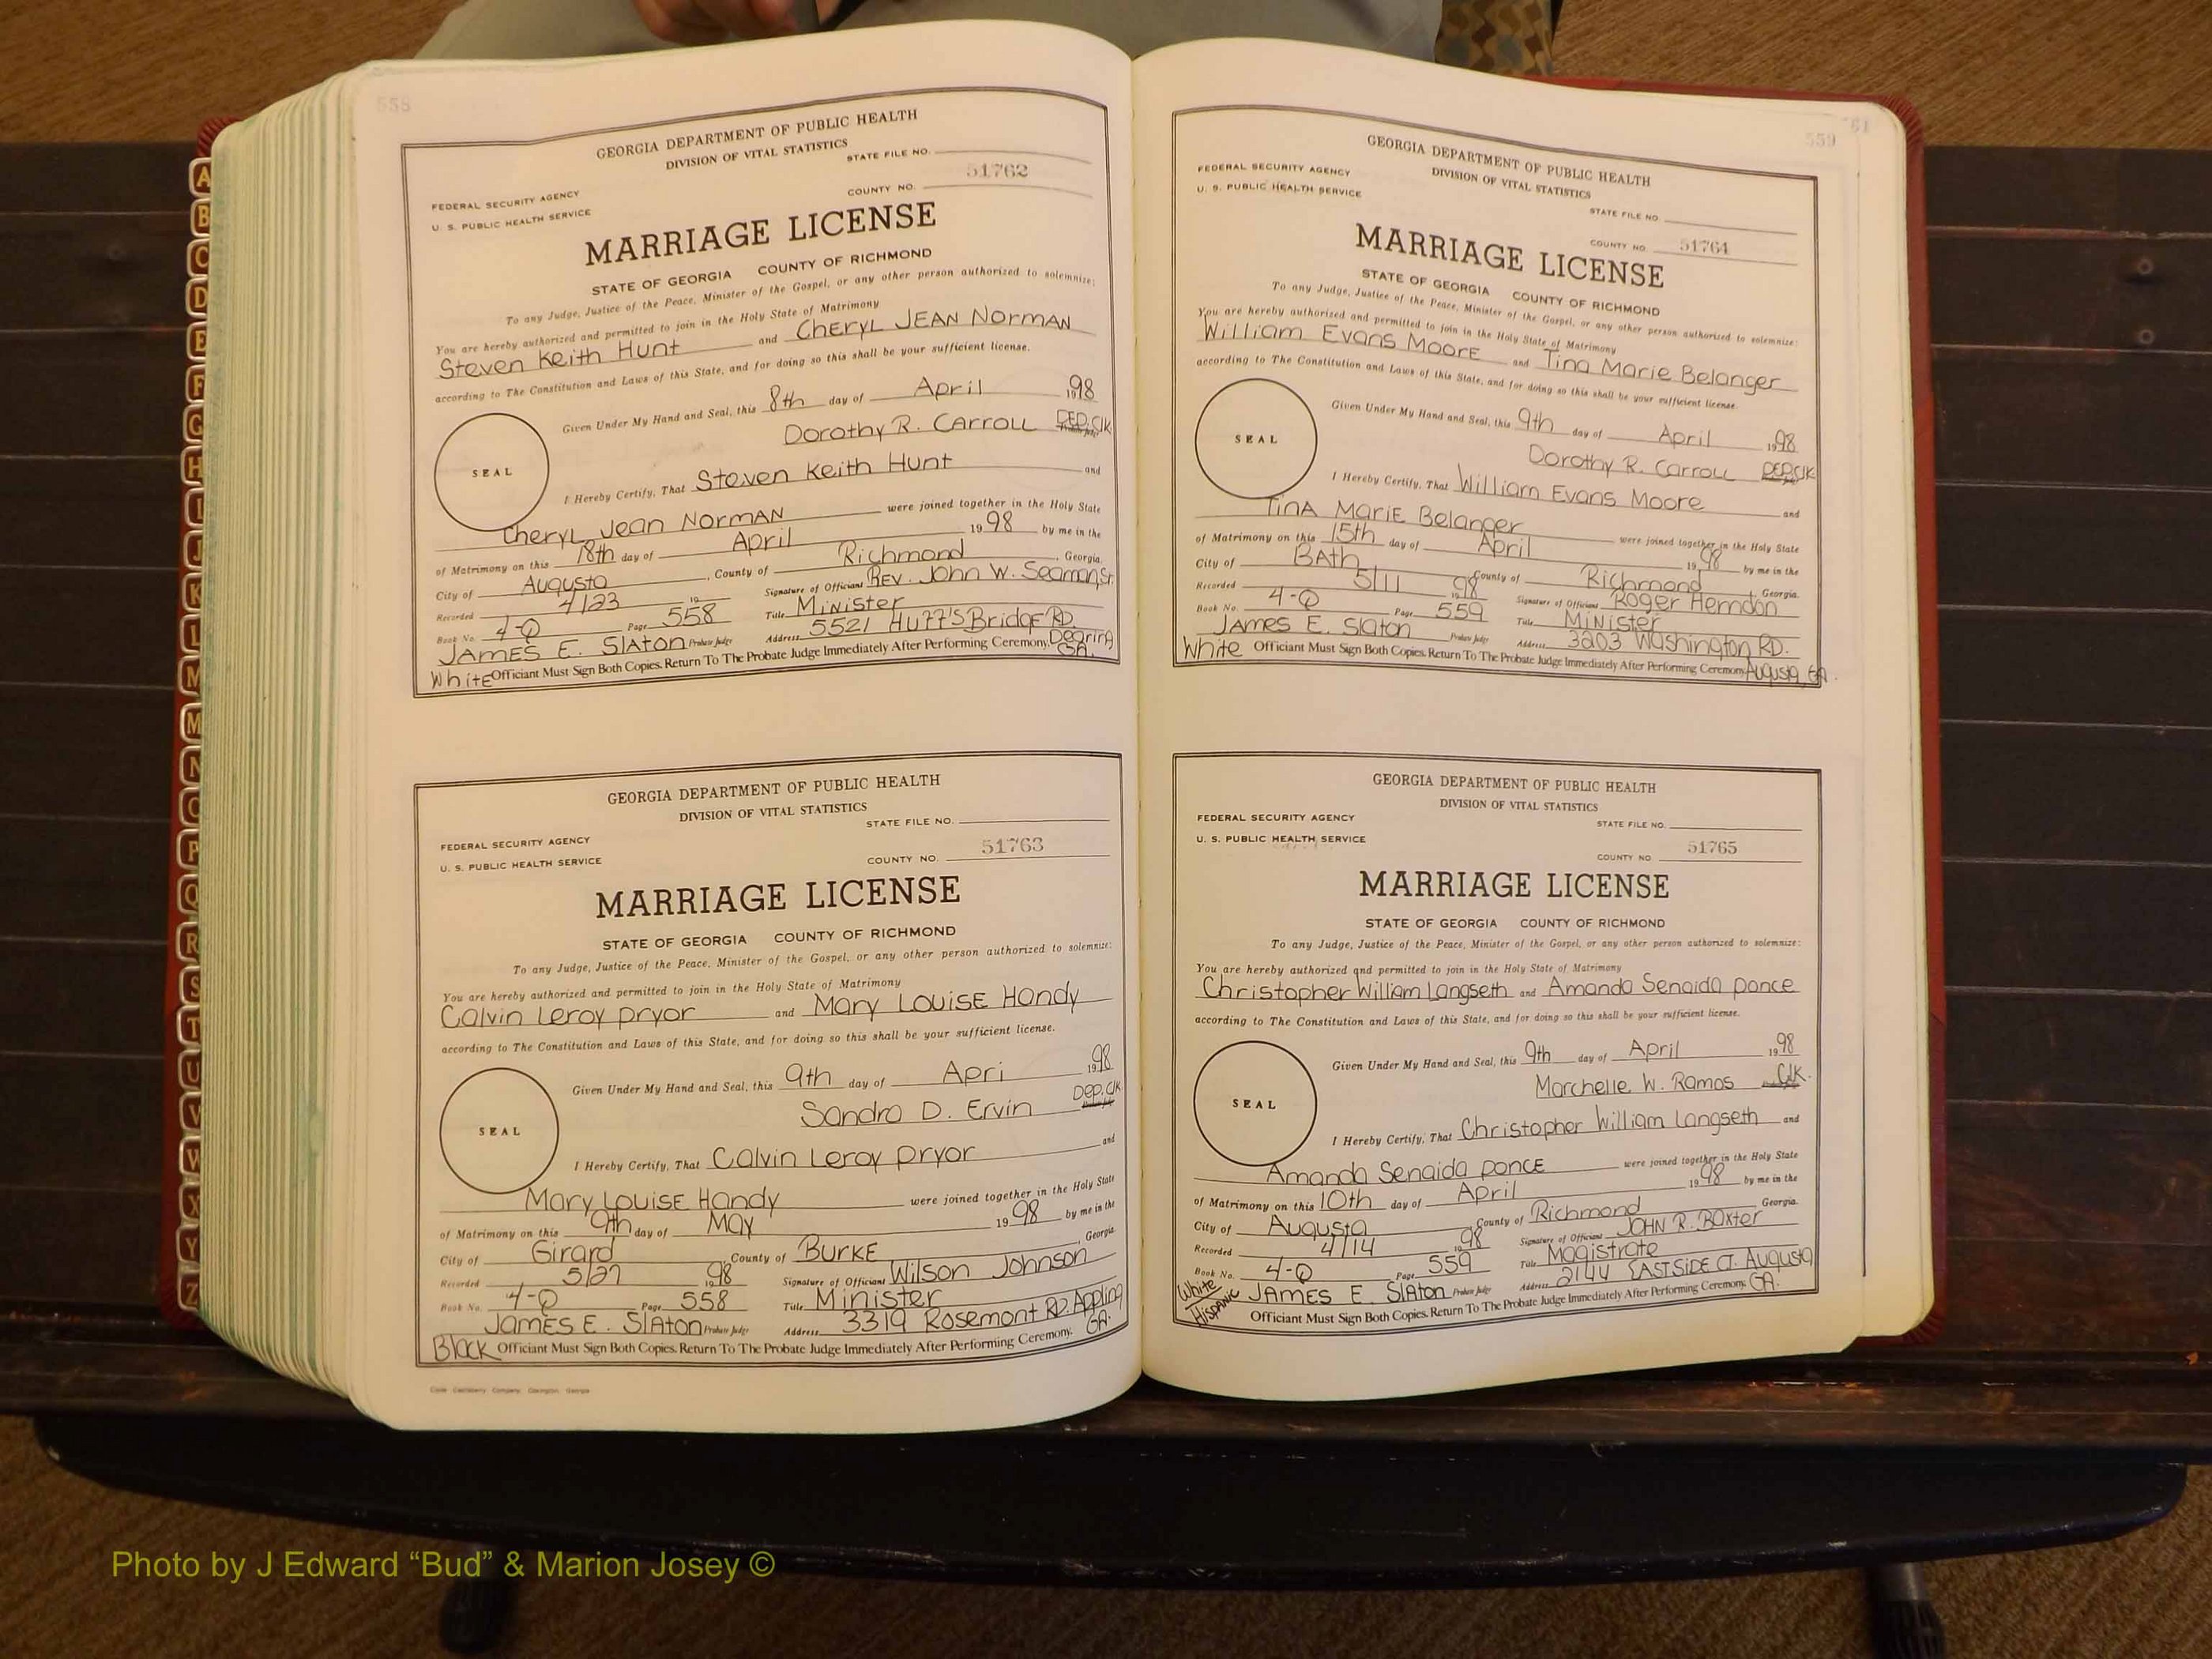 558
GEORGIA DEPARTMENT OF PUBLIC HEALTH
DIVISION OF VITAL STATISTICS
STATE FILE NO.
FEDERAL SECURITY AGENCY
COUNTY NO. 51762
U. S. PUBLIC HEALTH SERVICE
MARRIAGE LICENSE
STATE OF GEORGIA COUNTY OF RICHMOND
To any Judge, Justice of the Peace, Minister of the Gospel, or any other person authorized to solemnize:
You are hereby authorized and permitted to join in the Holy State of Matrimony
Steven Keith Hunt and Cheryl Jean Norman
according to The Constitution and Laws of this State, and for doing so this shall be your sufficient license.
Given Under My Hand and Seal, this 8th day of April 1998
Dorothy R. Carroll DEP. Clk
SEAL
I Hereby Certify, That Steven Keith Hunt and
Cheryl Jean Norman were joined together in the Holy State
of Matrimony on this 18th day of April 1998 by me in the
City of Augusta, County of Richmond, Georgia.
Recorded 4/23 19 Signature of Officiant Rev. John W. Seaman, Sr.
Book No. 4-Q Page 558 Title Minister
James E. Slaton Probate Judge Address 5521 Huff's Bridge RD Dearing GA.
White Officiant Must Sign Both Copies. Return To The Probate Judge Immediately After Performing Ceremony.
GEORGIA DEPARTMENT OF PUBLIC HEALTH
DIVISION OF VITAL STATISTICS
STATE FILE NO.
FEDERAL SECURITY AGENCY
COUNTY NO. 51763
U. S. PUBLIC HEALTH SERVICE
MARRIAGE LICENSE
STATE OF GEORGIA COUNTY OF RICHMOND
To any Judge, Justice of the Peace, Minister of the Gospel, or any other person authorized to solemnize:
You are hereby authorized and permitted to join in the Holy State of Matrimony
Calvin Leroy Pryor and Mary Louise Handy
according to The Constitution and Laws of this State, and for doing so this shall be your sufficient license.
Given Under My Hand and Seal, this 9th day of Apri 1998
Sandra D. Ervin Dep. Clk
SEAL
I Hereby Certify, That Calvin Leroy Pryor and
Mary Louise Handy were joined together in the Holy State
of Matrimony on this 9th day of May 1998 by me in the
City of Girard, County of Burke, Georgia
Recorded 5/27 1998 Signature of Officiant Wilson Johnson
Book No. 4-Q Page 558 Title Minister
James E. Slaton Probate Judge Address 3319 Rosemont RD. Appling GA.
Black Officiant Must Sign Both Copies. Return To The Probate Judge Immediately After Performing Ceremony.
559
61
GEORGIA DEPARTMENT OF PUBLIC HEALTH
DIVISION OF VITAL STATISTICS
FEDERAL SECURITY AGENCY
U. S. PUBLIC HEALTH SERVICE
STATE FILE NO.
COUNTY NO. 51764
MARRIAGE LICENSE
STATE OF GEORGIA COUNTY OF RICHMOND
To any Judge, Justice of the Peace, Minister of the Gospel, or any other person authorized to solemnize:
You are hereby authorized and permitted to join in the Holy State of Matrimony
William Evans Moore and Tina Marie Belanger
according to The Constitution and Laws of this State, and for doing so this shall be your sufficient license.
Given Under My Hand and Seal, this 9th day of April 1998
Dorothy R. Carroll DEP. Clk
SEAL
I Hereby Certify, That William Evans Moore and
Tina Marie Belanger were joined together in the Holy State
of Matrimony on this 15th day of April 1998 by me in the
City of Bath County of Richmond, Georgia.
Recorded 5/11 1998 Signature of Officiant Roger Herndon
Book No. 4-Q Page 559 Title Minister
James E. Slaton Probate Judge Address 3203 Washington RD.
White Officiant Must Sign Both Copies. Return To The Probate Judge Immediately After Performing Ceremony. Augusta, GA.
GEORGIA DEPARTMENT OF PUBLIC HEALTH
DIVISION OF VITAL STATISTICS
FEDERAL SECURITY AGENCY
STATE FILE NO.
U. S. PUBLIC HEALTH SERVICE
COUNTY NO 51765
MARRIAGE LICENSE
STATE OF GEORGIA COUNTY OF RICHMOND
To any Judge, Justice of the Peace, Minister of the Gospel, or any other person authorized to solemnize:
You are hereby authorized and permitted to join in the Holy State of Matrimony
Christopher William Langseth and Amanda Senaida Ponce
according to The Constitution and Laws of this State, and for doing so this shall be your sufficient license.
Given Under My Hand and Seal, this 9th day of April 1998
Marchelle W. Ramos Clk.
SEAL
I Hereby Certify, That Christopher William Langseth and
Amanda Senaida Ponce were joined together in the Holy State
of Matrimony on this 10th day of April 1998 by me in the
City of Augusta County of Richmond Georgia.
Recorded 4/14 1998 Signature of Officiant John R. Baxter
Book No. 4-Q Page 559 Title Magistrate
White Hispanic James E. Slaton Probate Judge Address 2144 Eastside CT. Augusta GA.
Officiant Must Sign Both Copies. Return To The Probate Judge Immediately After Performing Ceremony.
A
B
C
D
E
F
G
H
I
J
K
L
M
M
N
O
P
Q
R
S
T
U
V
W
X
Y
Z
Photo by J Edward “Bud” & Marion Josey ©